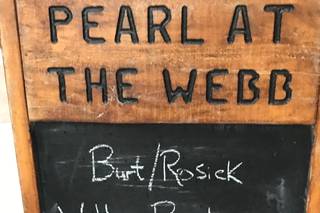 PEARL AT
THE WEBB
Burt/Rosick